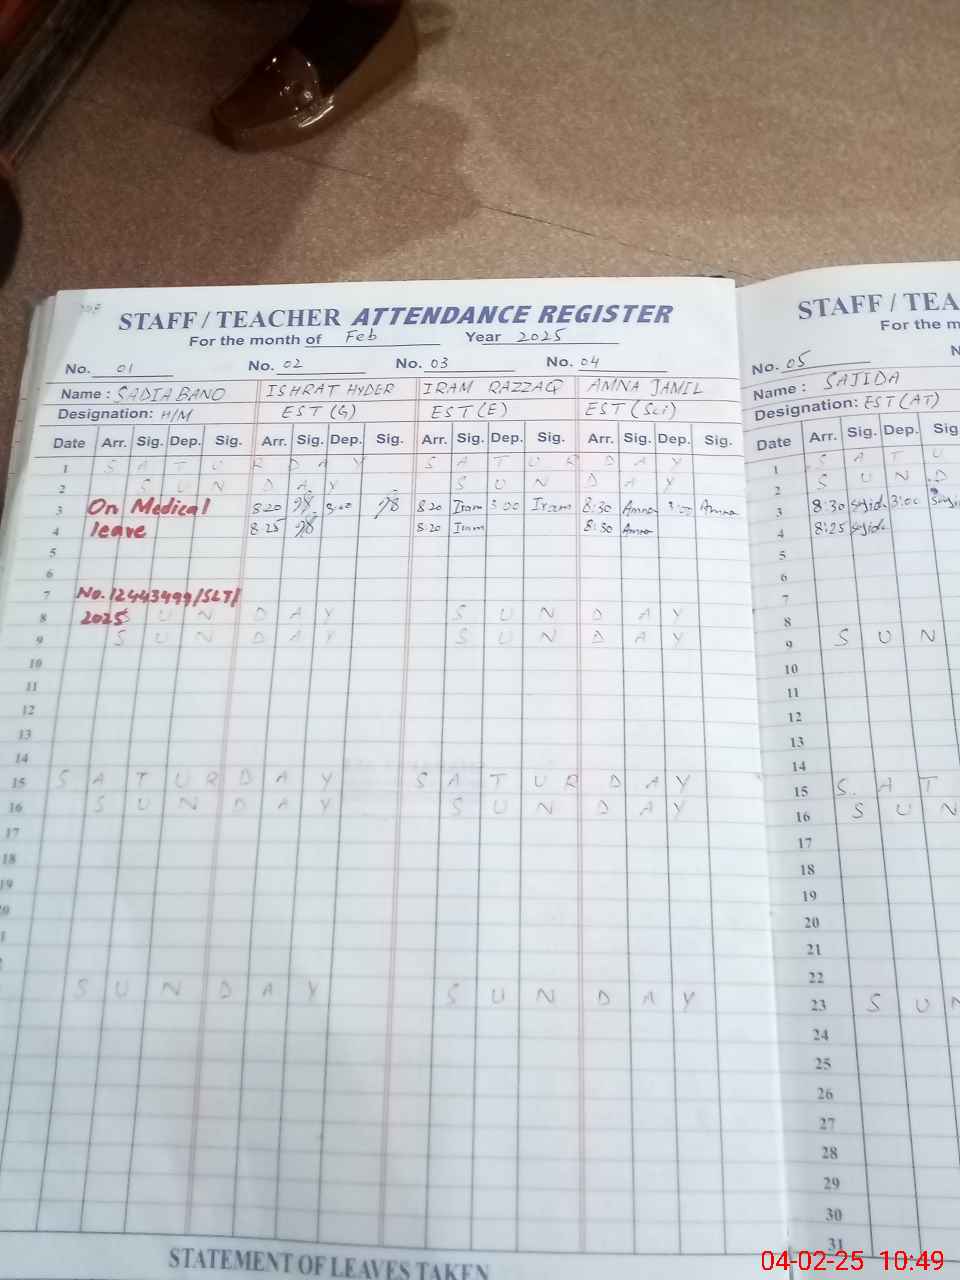 STAFF / TEACHER ATTENDANCE REGISTER
For the month of Feb Year 2025
No. 01 No. 02 No. 03 No. 04
Name : SADIA BANO ISHRAT HYDER IRAM RAZZAQ AMNA JAMIL
Designation: H/M EST (G) EST (E) EST (Sci)
Date Arr. Sig. Dep. Sig. Arr. Sig. Dep. Sig. Arr. Sig. Dep. Sig. Arr. Sig. Dep. Sig.
1 S A T U R D A Y S A T U R D A Y
2 S U N D A Y S U N D A Y
3 On Medical 8:20 3:00 8:20 Iram 3:00 Iram 8:30 Amna 3:00 Amna
4 leave 8:25 8:20 Iram 8:30 Amna
5
6
7 No. 12443499/SLT/
8 2025 S U N D A Y S U N D A Y
9 S U N D A Y S U N D A Y
10
11
12
13
14
15 S A T U R D A Y S A T U R D A Y
16 S U N D A Y S U N D A Y
17
18
19
S U N D A Y S U N D A Y
STATEMENT OF LEAVES TAKEN
STAFF / TEA
For the m
No. 05 N
Name : SAJIDA
Designation: EST (AT)
Date Arr. Sig. Dep. Sig
1 S A T U
2 S U N D
3 8:30 Sajida 3:00
4 8:25 Sajida
5
6
7
8
9 S U N
10
11
12
13
14
15 S. A T
16 S U N
17
18
19
20
21
22
23 S U N
24
25
26
27
28
29
30
31
04-02-25 10:49